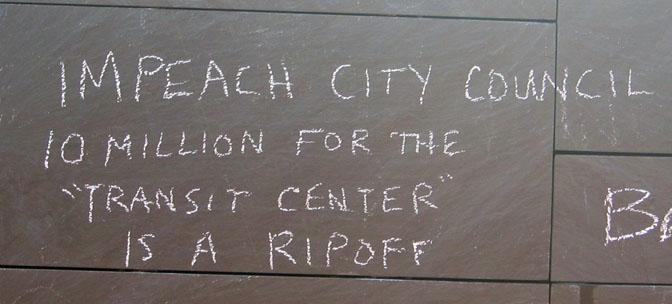 IMPEACH CITY COUNCIL
10 MILLION FOR THE
"TRANSIT CENTER"
IS A RIPOFF